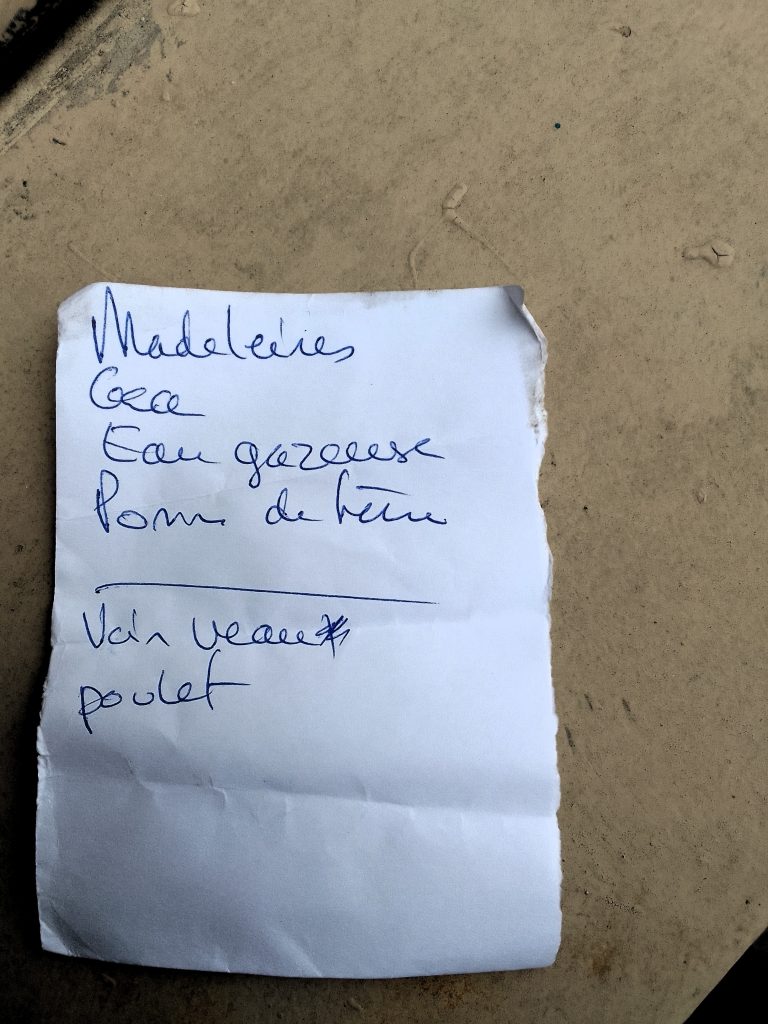 Madeleines
Coca
Eau gazeuse
Pomme de terre
Voir veau
poulet